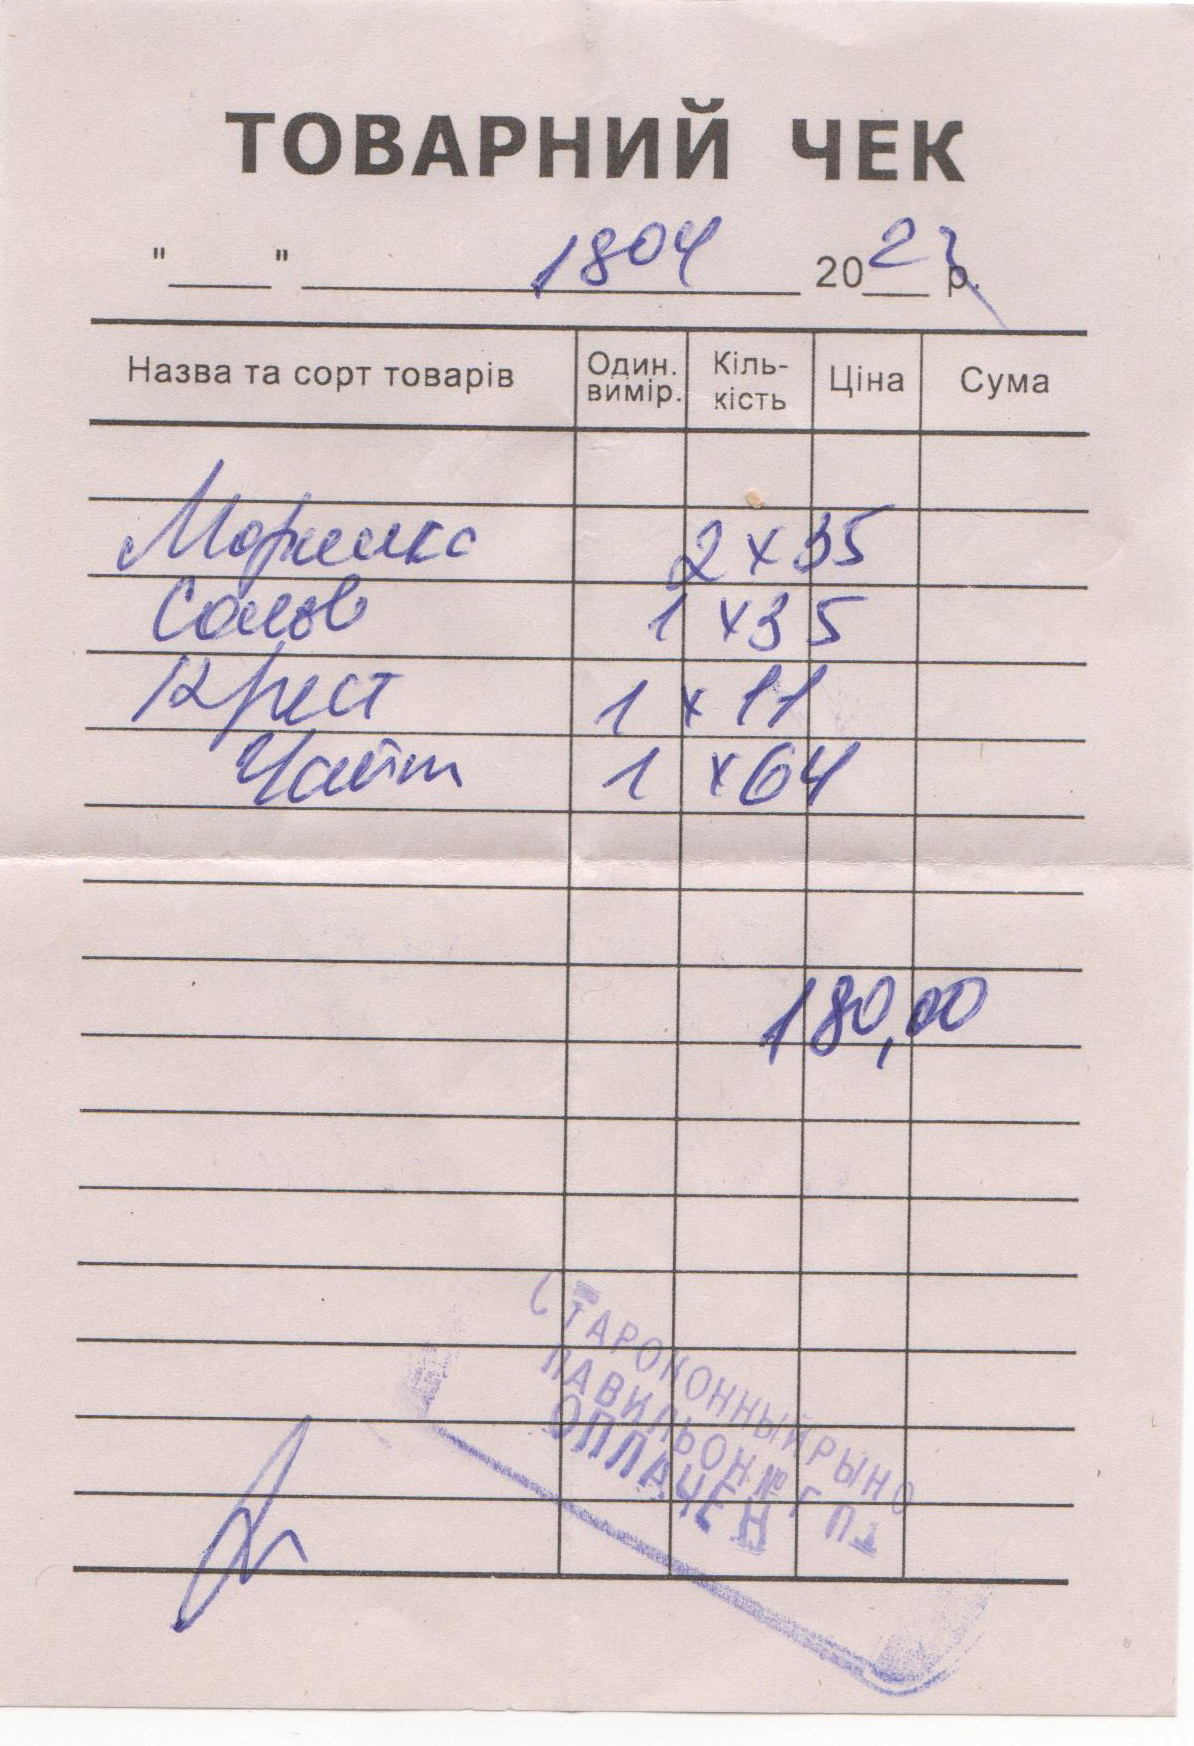 ТОВАРНИЙ ЧЕК
"___" 1804 2022 р.
Назва та сорт товарів Один. вимір. Кіль-кість Ціна Сума
Морилка 2 х 35
1 х 35
Крест 1 х 11
1 х 64
180,00
СТАРОКОННЫЙ РЫНО
ПАВИЛЬОН №
ОПЛАЧЕН